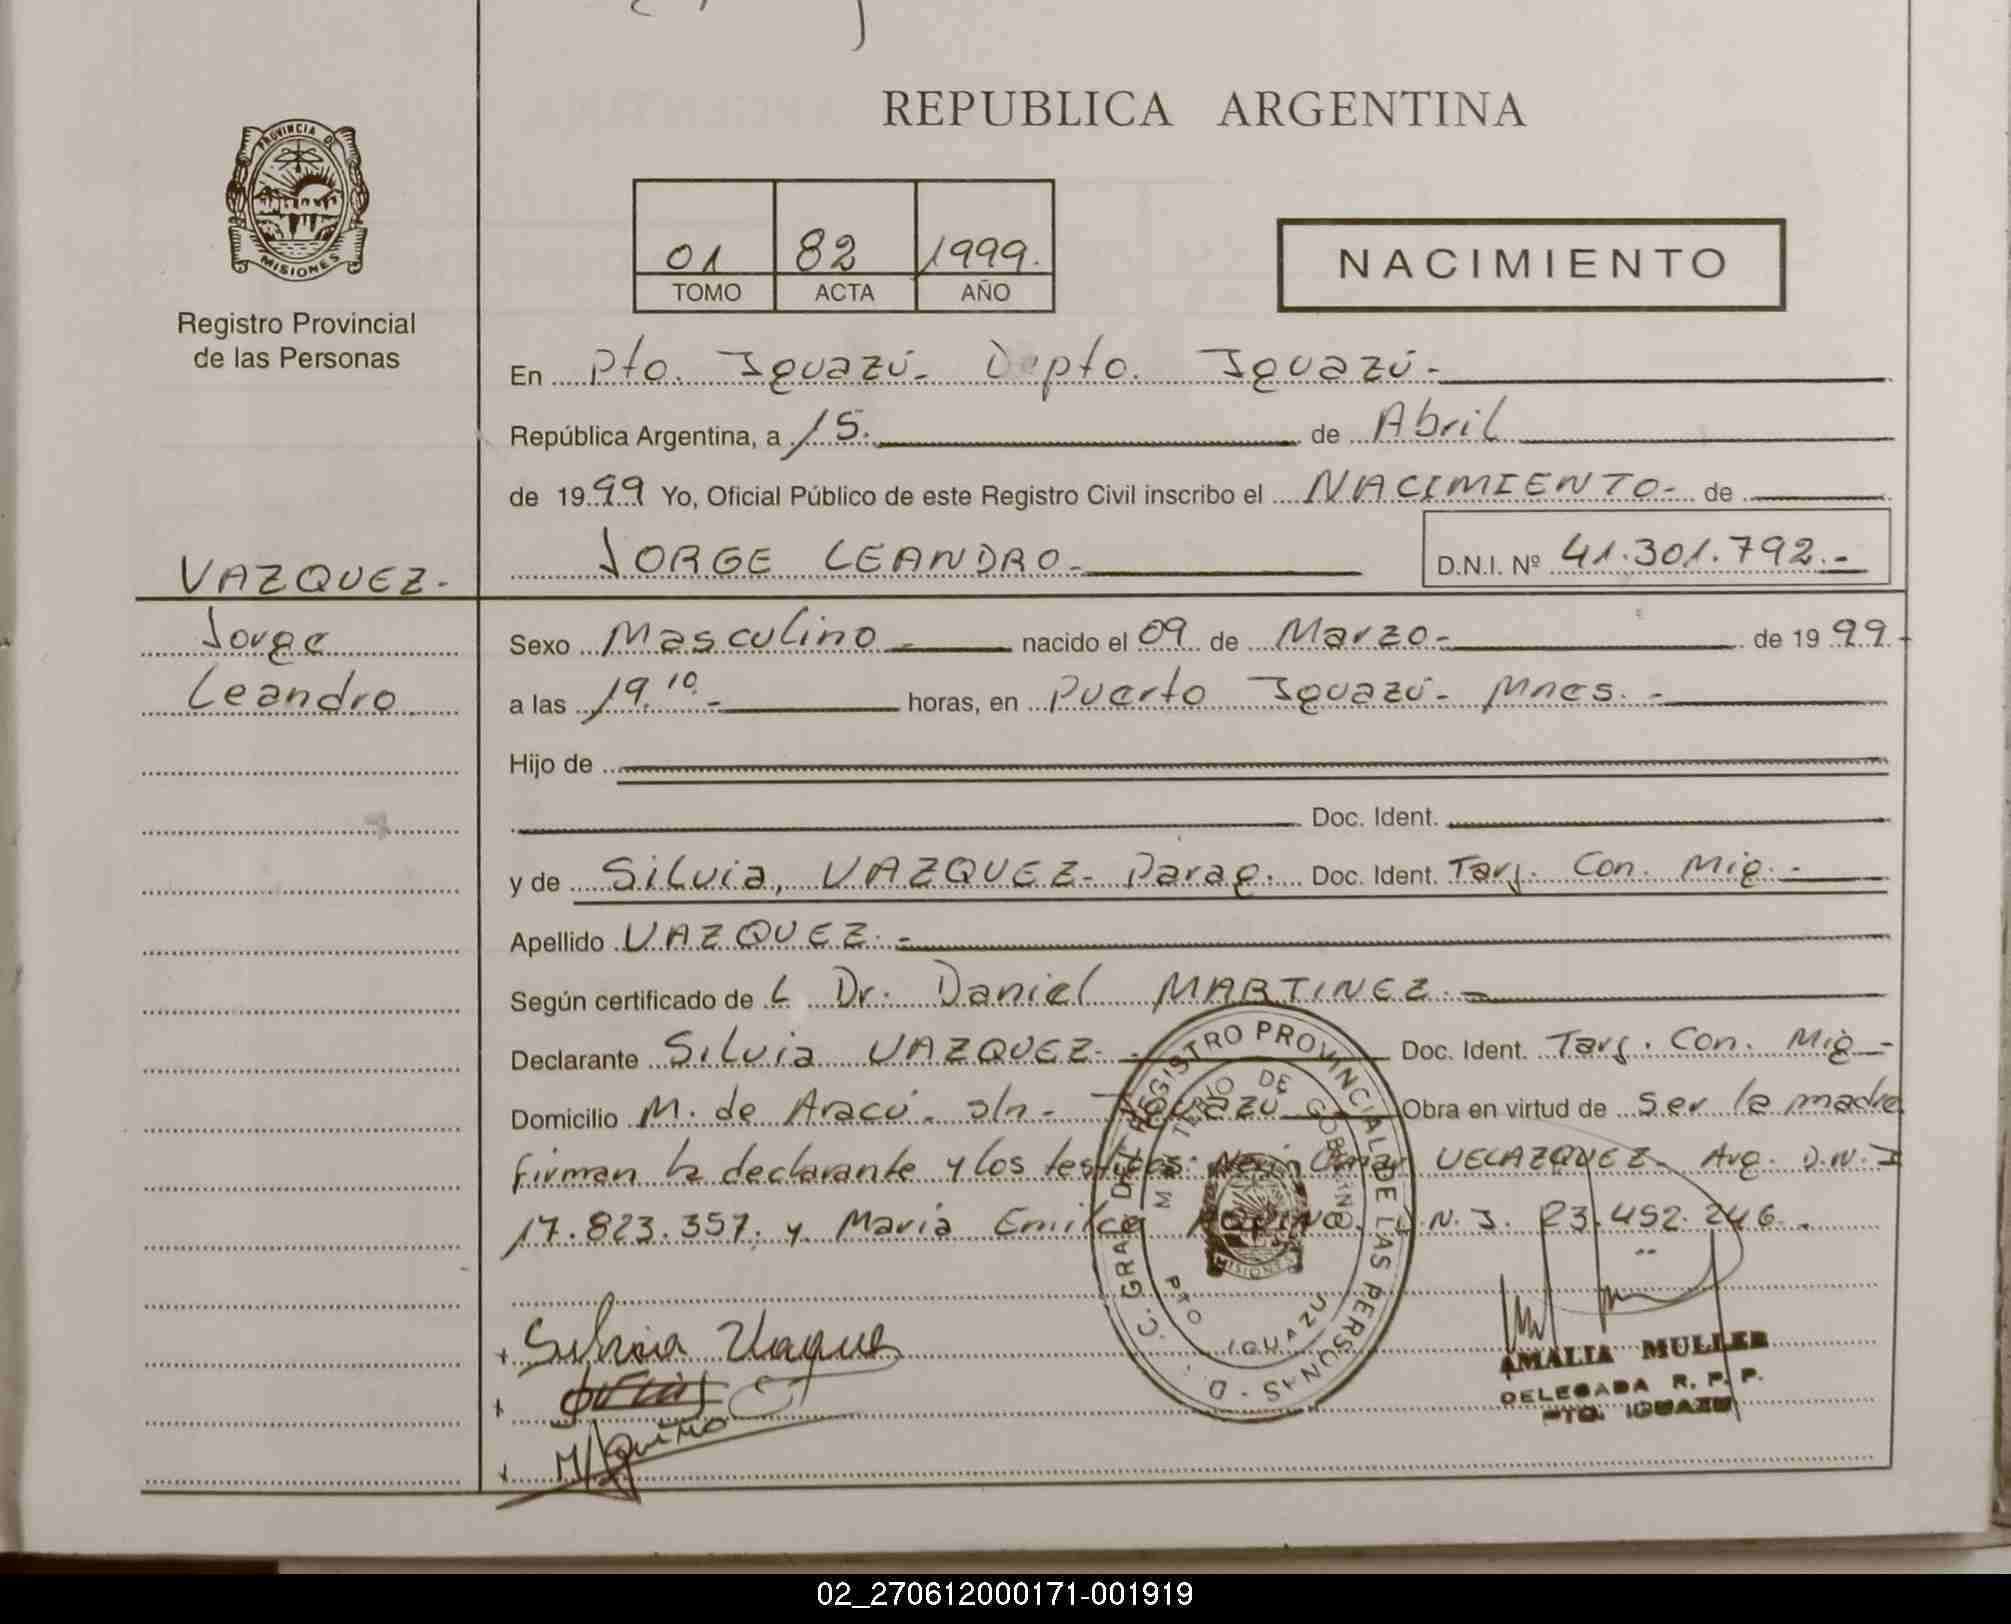 REPUBLICA ARGENTINA
PROVINCIA DE
MISIONES
Registro Provincial
de las Personas
01 82 1999.
TOMO ACTA AÑO
NACIMIENTO
En Pto. Iguazú- Dpto. Iguazú-
República Argentina, a 15. de Abril
de 1999 Yo, Oficial Público de este Registro Civil inscribo el NACIMIENTO- de
VAZQUEZ.
JORGE LEANDRO- D.N.I. Nº 41.301.792.-
Jorge
Leandro
Sexo Masculino- nacido el 09 de Marzo- de 1999-
a las 19.10.- horas, en Puerto Iguazú- Mnes.-
Hijo de
Doc. Ident.
y de Silvia, VAZQUEZ- Parag. Doc. Ident. Tarj. Con. Mig.-
Apellido VAZQUEZ.-
Según certificado de L Dr. Daniel MARTINEZ.-
Declarante Silvia VAZQUEZ.- Doc. Ident. Tarj. Con. Mig-
Domicilio M. de Aracú- s/n- Iguazú Obra en virtud de ser la madre
firman la declarante y los testigos: Omar VELAZQUEZ- Arg. D.N.I
17.823.357. y Maria Emilce AQUINO. D.N.I. 23.452.246.
REGISTRO PROVINCIAL DE LAS PERSONAS
MINISTERIO DE GOBIERNO
MISIONES
PTO IGUAZU
Silvia Vaque
M Aquino
AMALIA MULLER
DELEGADA R. P. P.
PTO. IGUAZU
02_270612000171-001919